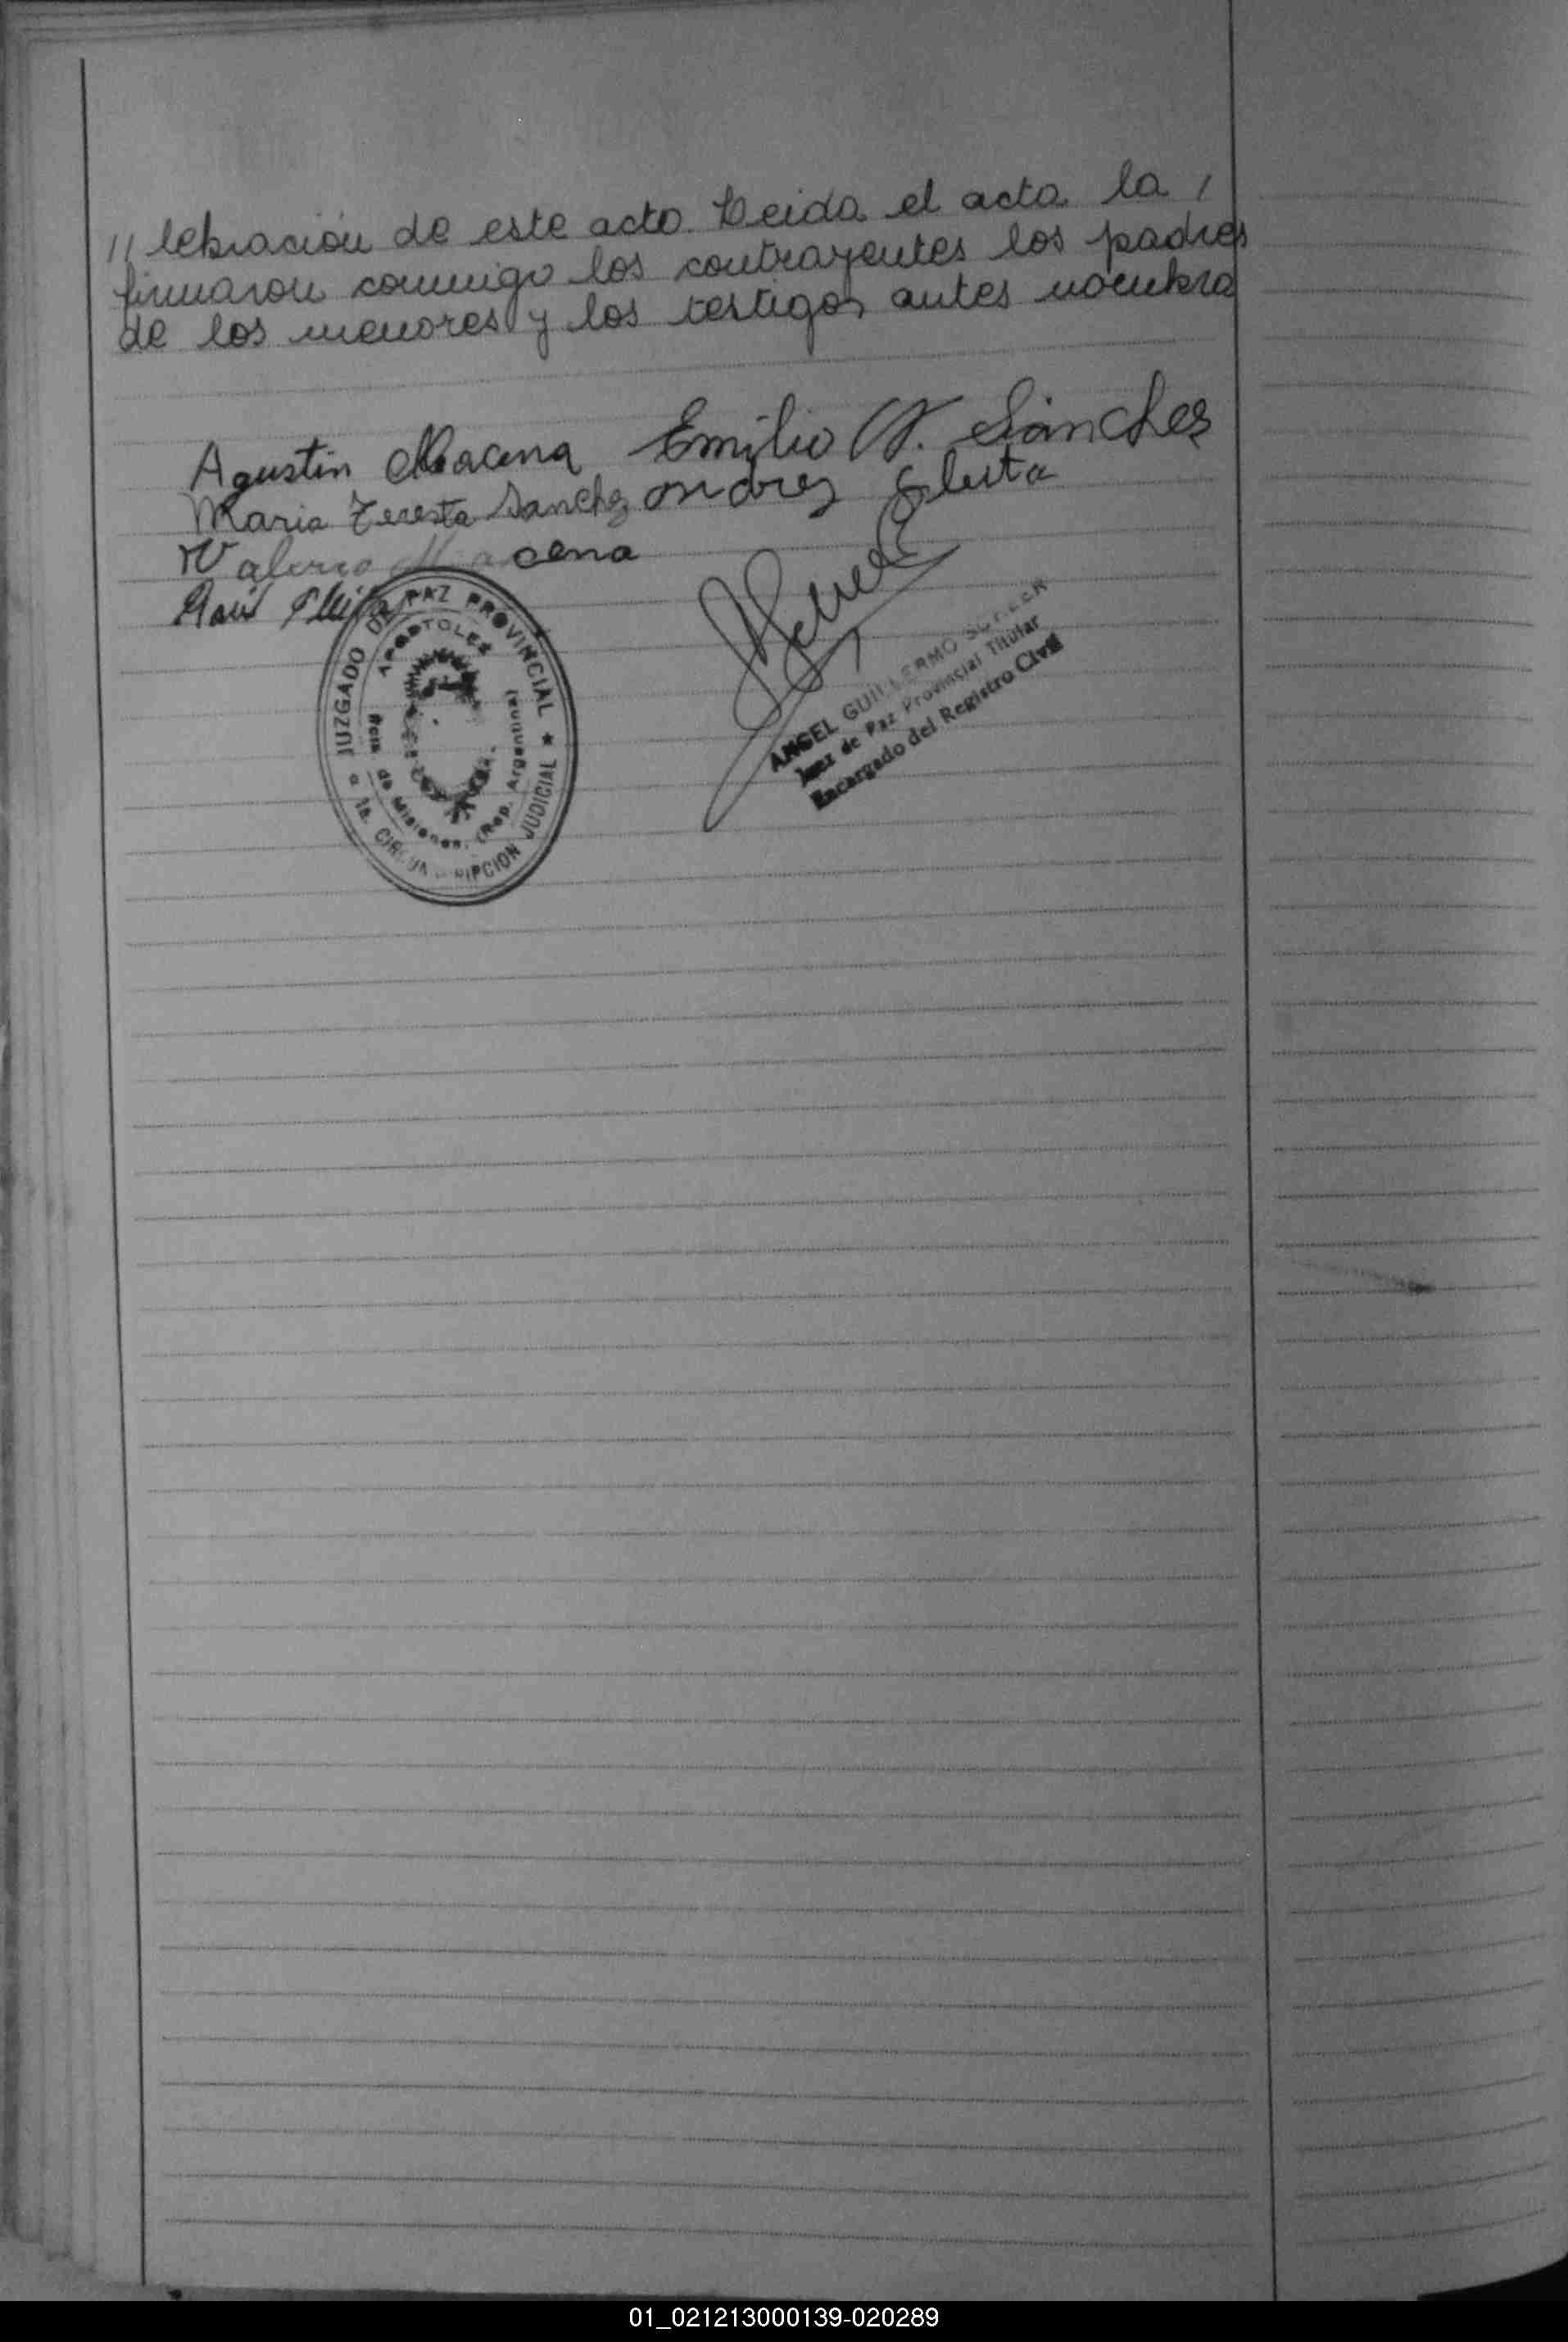 // lebracion de este acto. Leida el acta la /
firmaron conmigo los contrayentes los padres
de los menores y los testigos antes nombra
Agustin Macena Emilio N. Sánchez
Maria Teresta Sanchez Andres
Valerio Macena
Raul
JUZGADO DE PAZ PROVINCIAL ★
APOSTOLES
Pcia. de Misiones. (Rep. Argentina)
1a. CIRCUNSCRIPCION JUDICIAL
ANGEL GUILLERMO
Juez de Paz Provincial Titular
Encargado del Registro Civil
01_021213000139-020289